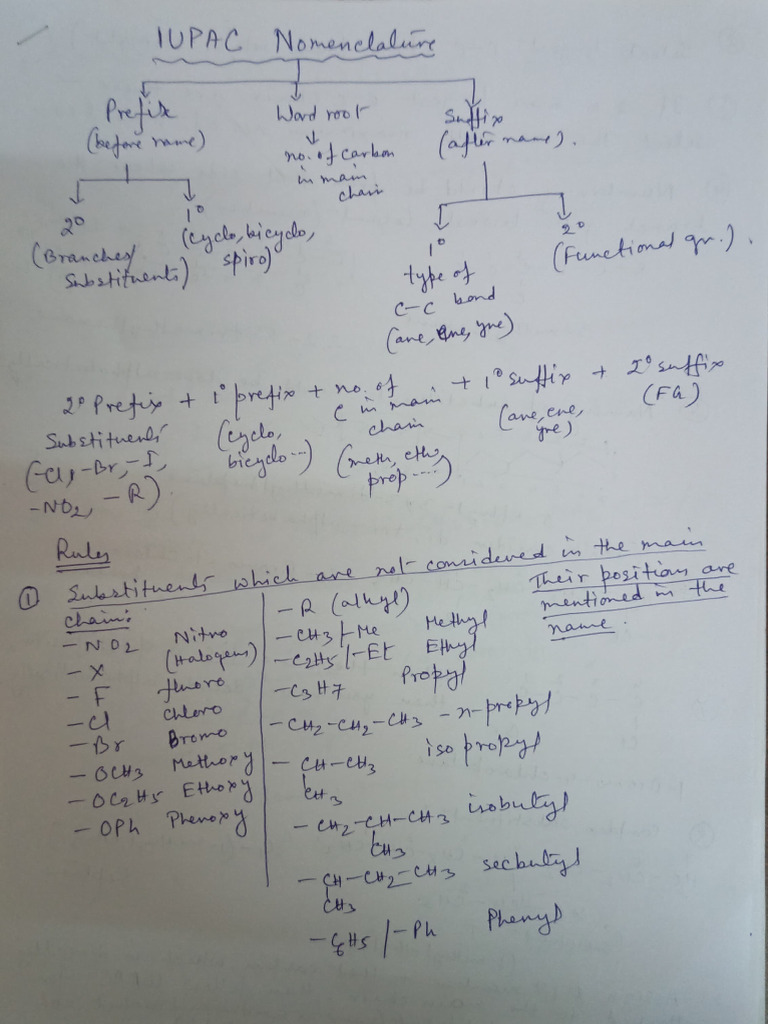 IUPAC Nomenclature
Prefix
(before name)
Word root
no. of carbon
in main
chain
Suffix
(after name).
2°
(Branches/
Substituents)
1°
(cyclo, bicyclo,
spiro)
1°
type of
C-C bond
(ane, ene, yne)
2°
(Functional gr.).
2° Prefix + 1° prefix + no. of C in main chain + 1° suffix + 2° suffix
Substituents
(-Cl, -Br, -I,
-NO2, -R).
(cyclo,
bicyclo...)
(meth, eth,
prop.....)
(ane, ene,
yne)
(FG)
Rules
① Substituents which are not considered in the main
chain:
Their positions are
mentioned in the
name.
-NO2 Nitro
-X (Halogens)
-F fluoro
-Cl chloro
-Br Bromo
-OCH3 Methoxy
-OC2H5 Ethoxy
-OPh Phenoxy
-R (alkyl)
-CH3/-Me Methyl
-C2H5/-Et Ethyl
-C3H7 Propyl
-CH2-CH2-CH3 -n-propyl
-CH-CH3 iso propyl
CH3
-CH2-CH-CH3 isobutyl
CH3
-CH-CH2-CH3 secbutyl
CH3
-C6H5/-Ph Phenyl